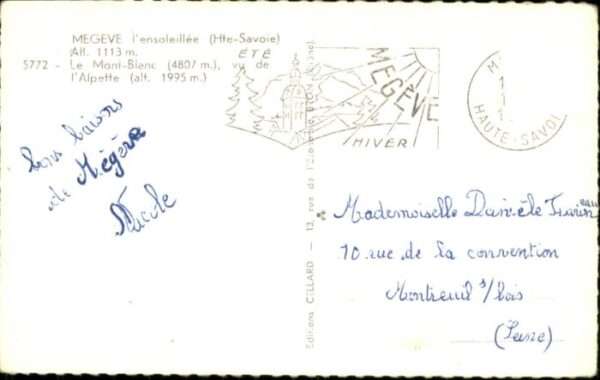 MEGEVE l'ensoleillée (Hte-Savoie)
Alt. 1113 m.
5772 - Le Mont-Blanc (4807 m.), vu de
l'Alpette (alt. 1995 m.)
ÉTÉ
MEGÈVE
HIVER
HAUTE-SAVOI
bons baisers
de Mégève
Editions CELLARD — 13, rue de l'Eglise
Mademoiselle Danièle
10 rue de la convention
Montreuil s/bois
(Seine)